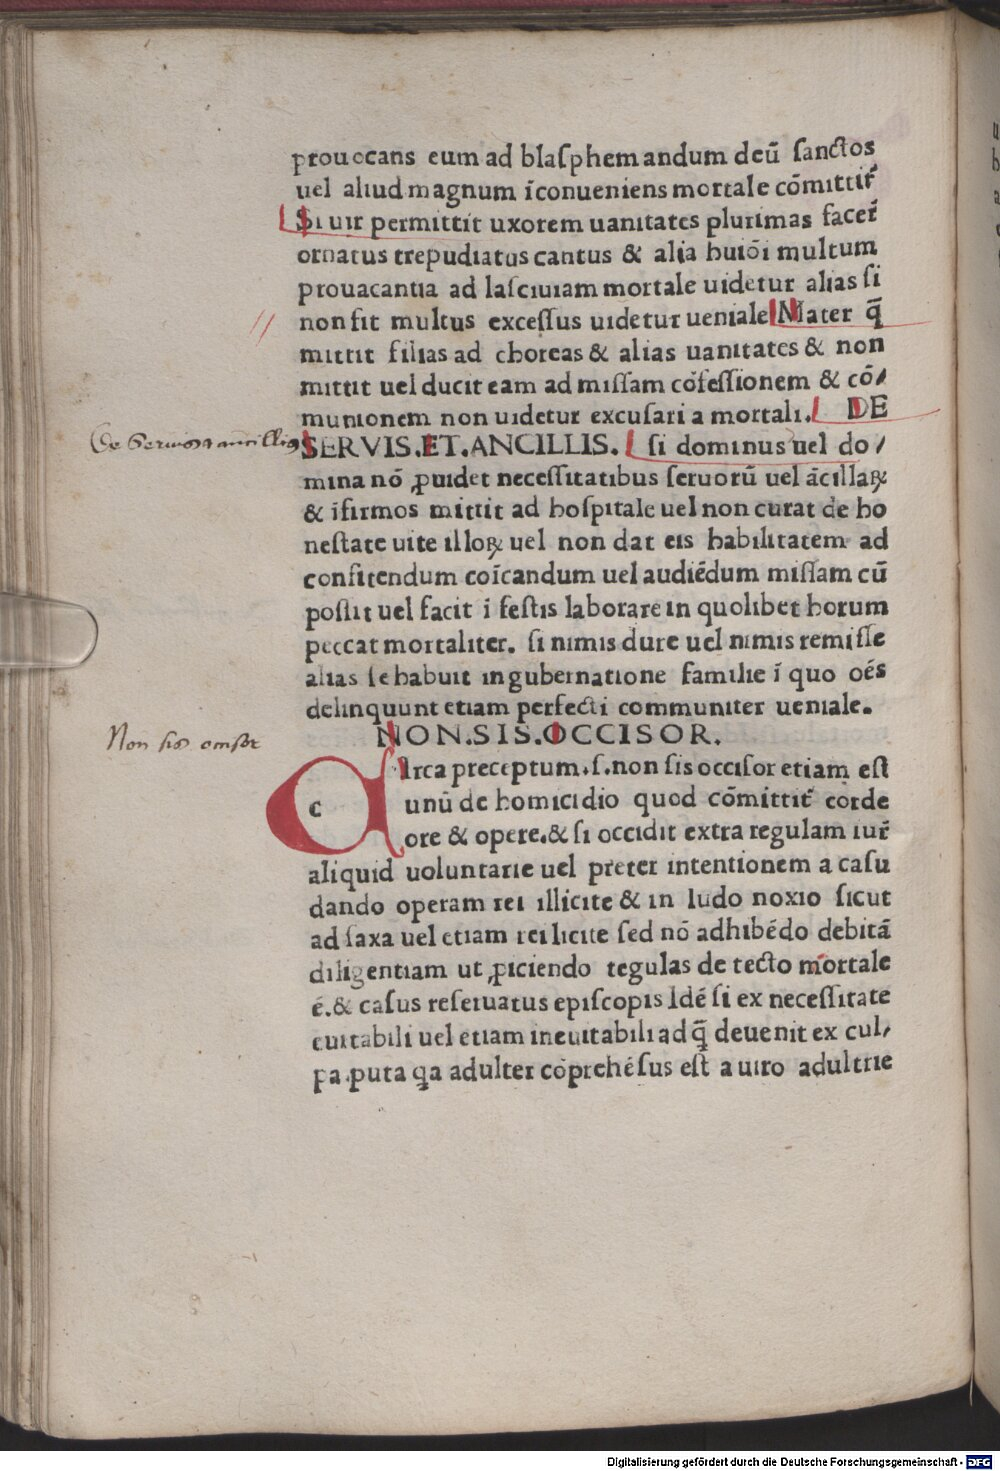 prouocans eum ad blaſphemandum deū ſanctos
uel aliud magnum īconueniens mortale cōmittit᷑
Si uir permittit uxorem uanitates plurimas facer̄
ornatus trepudiatus cantus & alia huiōi multum
prouacantia ad laſciuiam mortale uidetur alias ſi
non ſit multus exceſſus uidetur ueniale Mater q̄
mittit filias ad choreas & alias uanitates & non
mittit uel ducit eam ad miſſam cōfeſſionem & cō/
munionem non uidetur excuſari a mortali. DE
De Seruis et ancillis
SERVIS.ET.ANCILLIS. ſi dominus uel do/
mina nō ꝓuidet neceſſitatibus ſeruorū uel ācillaꝝ
& īfirmos mittit ad hoſpitale uel non curat de ho
neſtate uite illoꝝ uel non dat eis habilitatem ad
confitendum coīcandum uel audiēdum miſſam cū
poſſit uel facit ī feſtis laborare in quolibet horum
peccat mortaliter. ſi nimis dure uel nimis remiſſe
alias ſe habuit in gubernatione familie ī quo oēs
delinquunt etiam perfecti communiter ueniale.
Non sis occisor
NON.SIS.OCCISOR.
CIrca preceptum.ſ.non ſis occiſor etiam eſt
c
unū de homicidio quod cōmittit᷑ corde
ore & opere.& ſi occidit extra regulam iur̄
aliquid uoluntarie uel preter intentionem a caſu
dando operam rei illicite & in ludo noxio ſicut
ad ſaxa uel etiam rei licite ſed nō adhibēdo debitā
diligentiam ut ꝓiciendo tegulas de tecto mortale
ē.& caſus reſeruatus epiſcopis Idē ſi ex neceſſitate
euitabili uel etiam ineuitabili ad q̄ deuenit ex cul/
pa.puta qa adulter cōprehēſus eſt a uiro adultrie
Digitalisierung gefördert durch die Deutsche Forschungsgemeinschaft - DFG